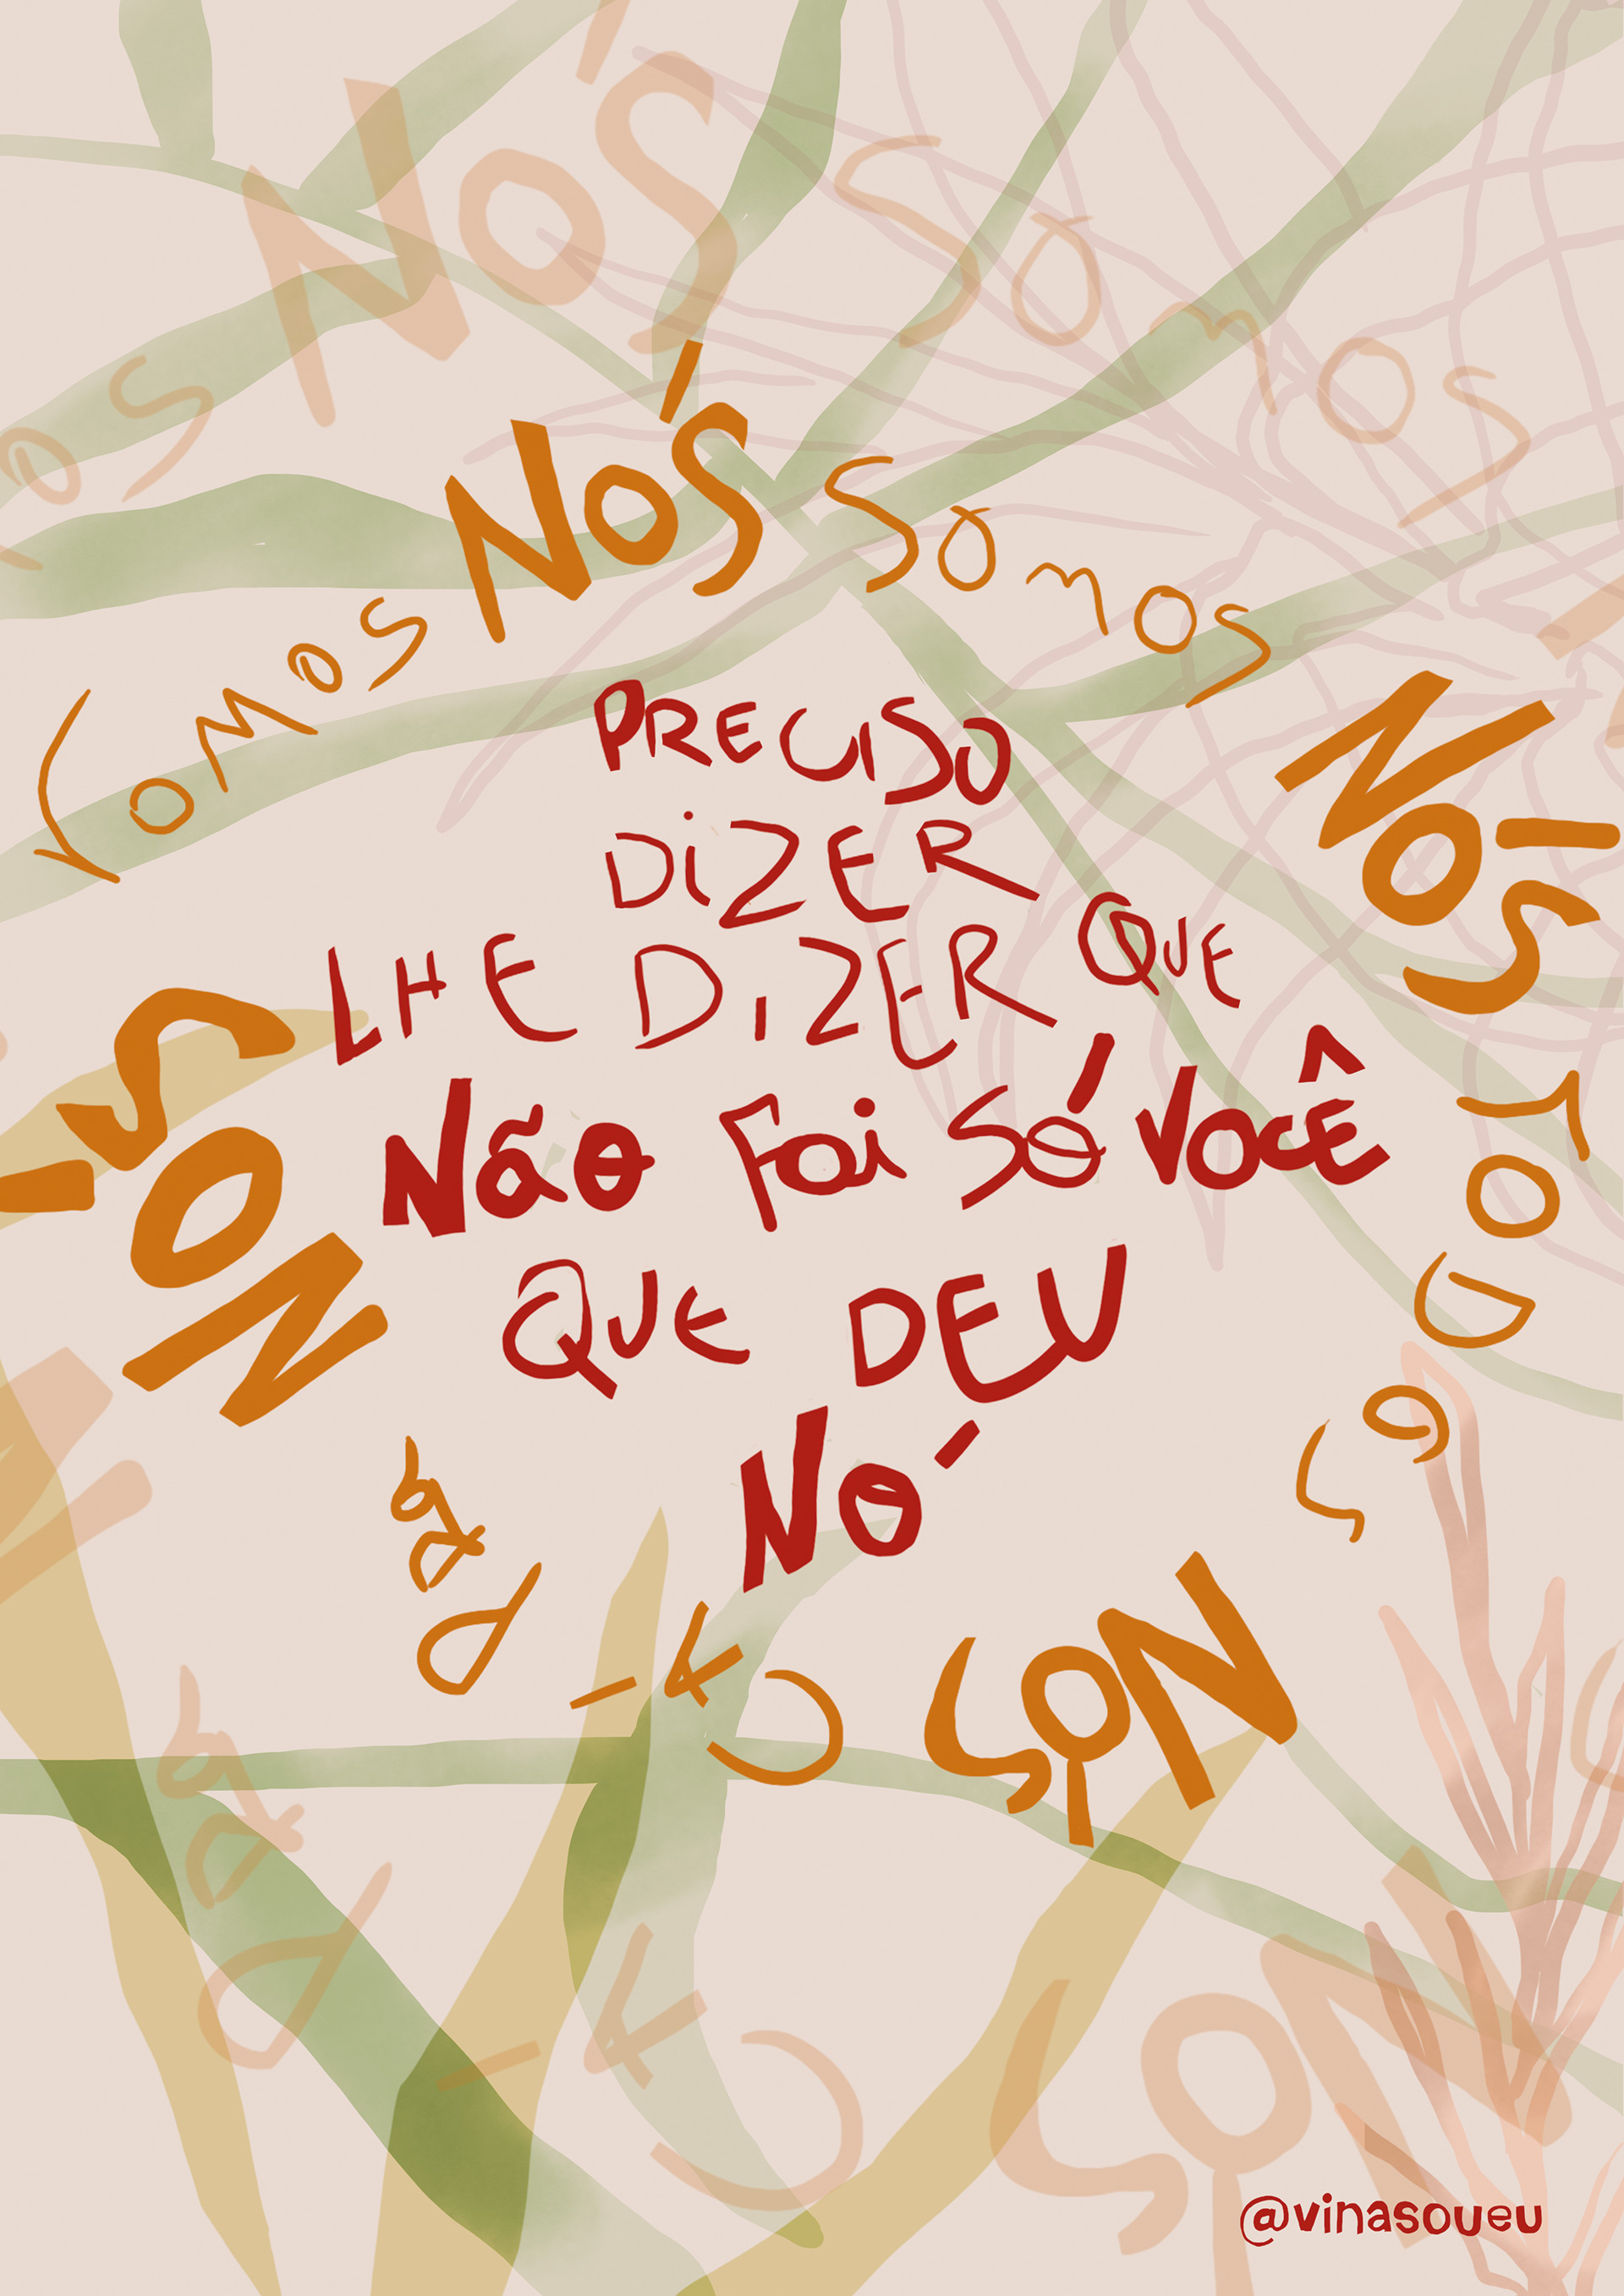 NÓS somos
somos NÓS somos NÓS
PRECISO
DiZER
LHE DiZER QUE
NÃO foi SÓ VOCÊ
QUE DEU
NÓ
NÓS
NÓS
NÓS
@vinasoueu